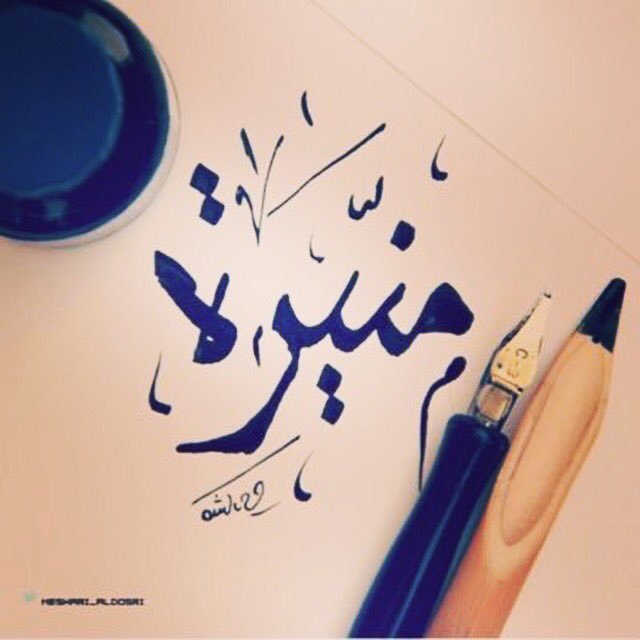 منيرة
MESHARI_ALDOSRI